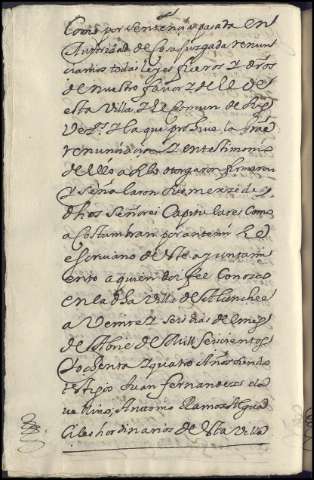 Como por sentençia pasada en
Autoridad de Cosa juzgada renun
çiamos todas leyes fueros y dros
de nuestro fauor y de el de
esta Villa y el Comun de
y la que prohiue la
renunçiaçion y en testimonio
de ello asi lo otorgaron firmaron
y señalaron sus merzedes
dhos Señores Capitulares Como
acostumbran por ante mi el
escriuano de este ayuntami
ento a quien doy fee Conozco
en la dha Villa de
a Veinte y seis dias del mes
de de Mill seiscientos
y ochenta y quatro Años siendo
testigos Juan fernandez
Antonio Ramos Algua
çiles hordinarios de esta Villa